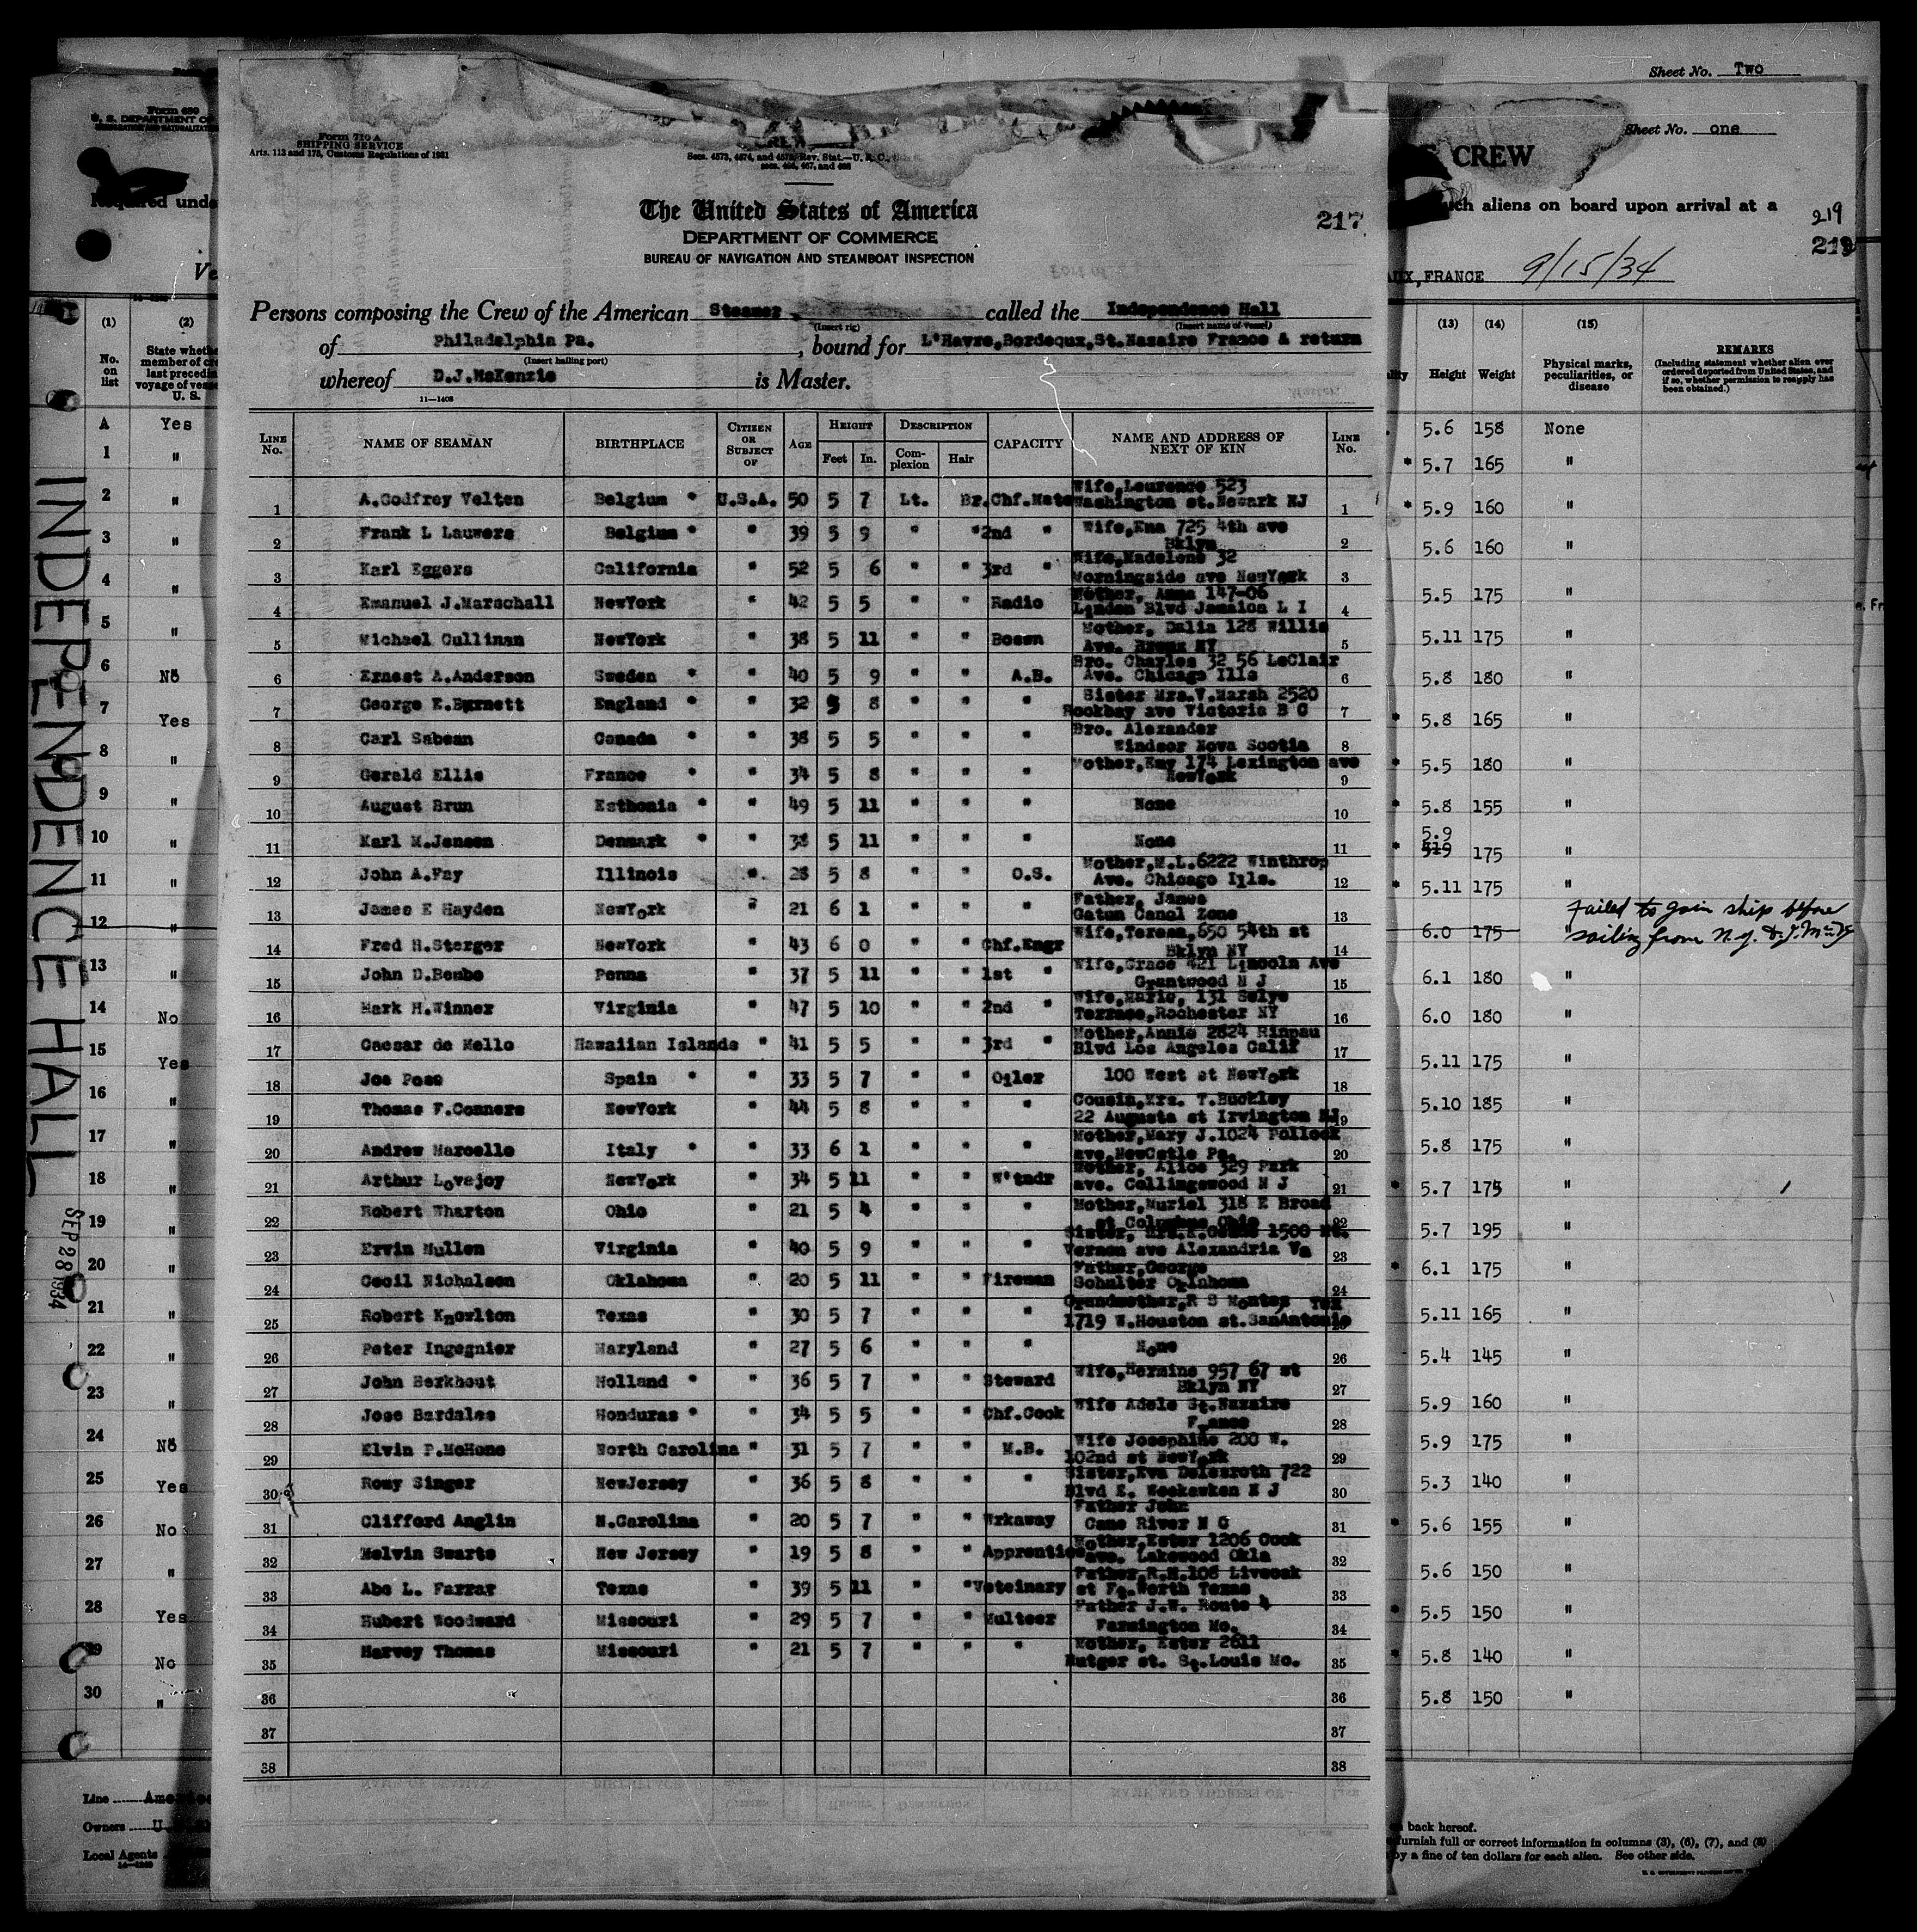 Sheet No. Two
Form 680
U. S. DEPARTMENT OF
Required unde
Ve
Form 710 A
SHIPPING SERVICE
Arts. 113 and 175, Customs Regulations of 1931
Secs. 4573, 4574, and 4575, Rev. Stat.—U. S. C.,
secs. 466, 467, and 468
The United States of America
DEPARTMENT OF COMMERCE
BUREAU OF NAVIGATION AND STEAMBOAT INSPECTION
217
Sheet No. one
CREW
such aliens on board upon arrival at a
219
AUX, FRANCE 9/15/34
Persons composing the Crew of the American Steamer called the Independence Hall
(Insert rig) (Insert name of vessel)
of Philadelphia Pa. , bound for L'Havre,Bordequx,St.Nazaire France & return
(Insert hailing port)
whereof D.J.McKenzie is Master.
11—1408
LINE No. NAME OF SEAMAN BIRTHPLACE CITIZEN OR SUBJECT OF AGE HEIGHT Feet In. DESCRIPTION Complexion Hair CAPACITY NAME AND ADDRESS OF NEXT OF KIN LINE No.
1 A.Godfrey Velten Belgium * U.S.A. 50 5 7 Lt. Br. Chf.Mate Wife,Laurence 523 Washington st.Newark NJ 1
2 Frank L Lauwers Belgium * " 39 5 9 " " 2nd " Wife,Ema 725 4th ave Bklyn 2
3 Karl Eggers California " 52 5 6 " " 3rd " Wife,Madelone 32 Morningside ave NewYork 3
4 Emanuel J.Marschall NewYork " 42 5 5 " " Radio Mother, Anna 147-06 Linden Blvd Jamaica L I 4
5 Michael Cullinan NewYork " 38 5 11 " " Bosen Mother, Dalia 128 Willis Ave. Bronx NY 5
6 Ernest A.Anderson Sweden * " 40 5 9 " " A.B. Bro. Charles 32 56 LeClair Ave. Chicago Ills 6
7 George E.Burnett England * " 32 5 8 " " " Sister Mrs.V.Marsh 2520 Rookbay ave Victoria B C 7
8 Carl Sabean Canada * " 38 5 5 " " " Bro. Alexander Windsor Nova Scotia 8
9 Gerald Ellis France * " 34 5 8 " " " Mother,Kay 174 Lexington ave NewYork 9
10 August Brun Esthonia * " 49 5 11 " " " None 10
11 Karl M.Jensen Denmark * " 38 5 11 " " " None 11
12 John A.Fay Illinois " 28 5 8 " " O.S. Mother,M.L.6222 Winthrop Ave. Chicago Ills. 12
13 James E Hayden NewYork " 21 6 1 " " " Father, James Gatun Canol Zone 13
14 Fred H.Sterger NewYork " 43 6 0 " " Chf.Engr Wife,Teresa,650 54th st Bklyn NY 14
15 John D.Benbo Penna " 37 5 11 " " 1st " Wife,Grace 421 Lincoln Ave Grantwood N J 15
16 Mark H.Winner Virginia " 47 5 10 " " 2nd " Wife,Marie, 131 Selye Terrace,Rochester NY 16
17 Caesar de Mello Hawaiian Islands " 41 5 5 " " 3rd " Mother,Annie 2824 Rinpau Blvd Los Angeles Calif 17
18 Jos Pose Spain * " 33 5 7 " " Oiler 100 West st NewYork 18
19 Thomas F.Conners NewYork " 44 5 8 " " " Cousin,Mrs. T.Buckley 22 Augusta st Irvington NJ 19
20 Andrew Marcello Italy * " 33 6 1 " " " Mother,Mary J.1024 Pollock ave,NewCstle Pa. 20
21 Arthur Lovejoy NewYork " 34 5 11 " " W'tndr Mother, Alice 329 Park ave. Collingswood N J 21
22 Robert Wharton Ohio " 21 5 4 " " " Mother,Muriel 318 E Broad st Columbus Ohio 22
23 Ervin Mullen Virginia " 40 5 9 " " " Sister, 1500 Mt. Vernon ave Alexandria Va 23
24 Cecil Nichalson Oklahoma " 20 5 11 " " Fireman Father,George Schulter Oklahoma 24
25 Robert Knowlton Texas " 30 5 7 " " " Grandmother,R S Montez Tex 1719 W.Houston st.SanAntonio 25
26 Peter Ingegnier Maryland " 27 5 6 " " " None 26
27 John Berkhout Holland * " 36 5 7 " " Steward Wife,Hermine 957 67 st Bklyn NY 27
28 Jose Bardales Honduras * " 34 5 5 " " Chf.Cook Wife Adele St.Nazaire France 28
29 Elvin P.McHone North Carolina " 31 5 7 " " M.B. Wife Josephine 200 W. 102nd st NewYork 29
30 Romy Singer NewJersey " 36 5 8 " " " Sister,Eva Delezroth 722 Blvd E. Weekawken N J 30
31 Clifford Anglin N.Carolina " 20 5 7 " " Wrkaway Father John Cane River N C 31
32 Melvin Swarts New Jersey " 19 5 8 " " Apprentice Mother,Ester 1206 Cook ave. Lakewood Okla 32
33 Abe L. Farrar Texas " 39 5 11 " " Veteinary Father,R.H.106 Livecak st Ft.Worth Texas 33
34 Hubert Woodward Missouri " 29 5 7 " " Multeer Father J.W. Route 4 Farmington Mo. 34
35 Harvey Thomas Missouri " 21 5 7 " " " Mother, Ester 2611 Rutger st. St.Louis Mo. 35
36 36
37 37
38 38
(1) (2)
No. on list State whether member of crew last preceding voyage of vessel U. S.
A Yes
1 "
2 "
3 "
4 "
5 "
6 No
7 Yes
8 "
9 "
10 "
11 "
12 "
13 "
14 No
15 Yes
16 "
17 "
18 "
19 "
20 "
21 "
22 "
23 "
24 No
25 Yes
26 No
27 "
28 Yes
29 No
30 "
INDEPENDENCE HALL
SEP 28 1934
Line
Owners U.
Local Agents
(13) (14) (15)
Height Weight Physical marks, peculiarities, or disease REMARKS
(Including statement whether alien ever ordered deported from United States, and if so, whether permission to reapply has been obtained.)
5.6 158 None
* 5.7 165 "
* 5.9 160 "
5.6 160 "
5.5 175 "
5.11 175 "
5.8 180 "
* 5.8 165 "
* 5.5 180 "
* 5.8 155 "
5.9
* 175 "
* 5.11 175 "
6.0 175 " Failed to join ship before sailing from N.Y.
6.1 180 "
6.0 180 "
5.11 175 "
5.10 185 "
5.8 175 "
* 5.7 175 "
5.7 195 "
* 6.1 175 "
5.11 165 "
5.4 145 "
5.9 160 "
5.9 175 "
5.3 140 "
* 5.6 155 "
5.6 150 "
* 5.5 150 "
* 5.8 140 "
5.8 150 "
back hereof.
furnish full or correct information in columns (3), (6), (7), and (8)
by a fine of ten dollars for each alien. See other side.